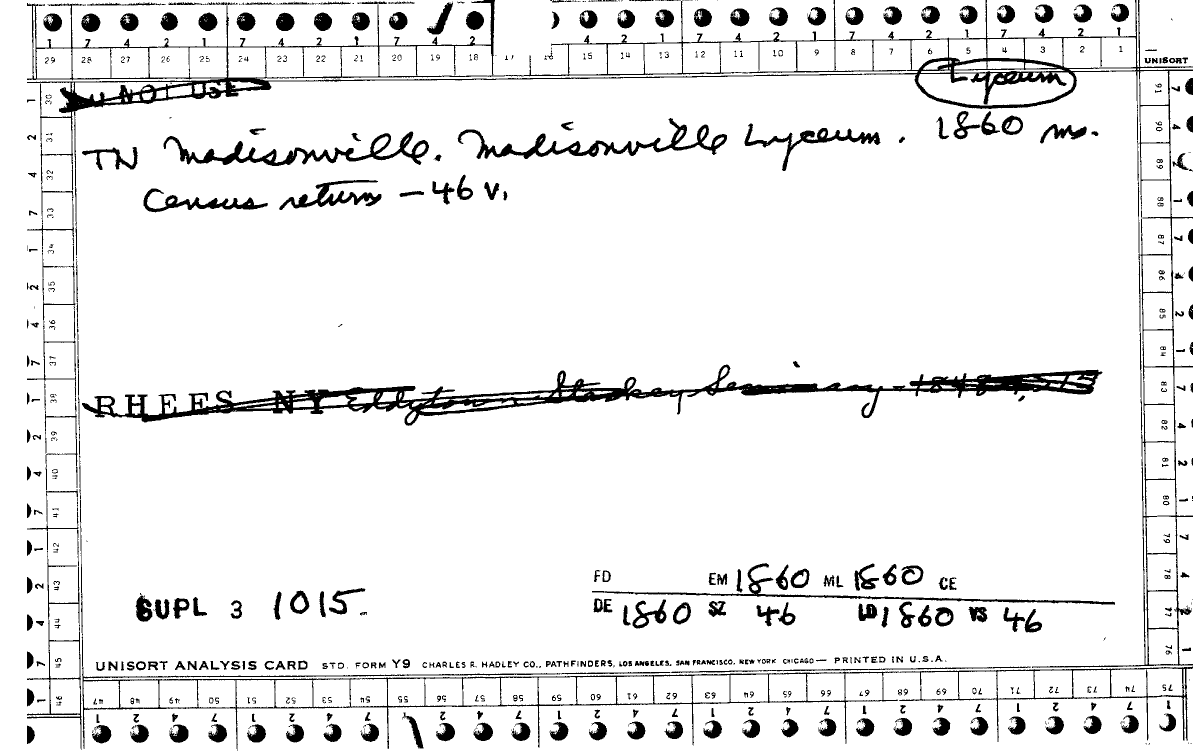 1 7 4 2 1 7 4 2 1 7 4 2 4 2 1 7 4 2 1 7 4 2 1 7 4 2 1
29 28 27 26 25 24 23 22 21 20 19 18 17 16 15 14 13 12 11 10 9 8 7 6 5 4 3 2 1
UNISORT
Lyceum
DO NOT USE
TN Madisonville. Madisonville Lyceum. 1860 ms.
Census return – 46 v.
RHEES NY Eddytown Starkey Seminary - 1848
SUPL 3 1015
FD EM 1860 ML 1860 CE
DE 1860 SZ 46 LD 1860 VS 46
UNISORT ANALYSIS CARD STD. FORM Y9 CHARLES R. HADLEY CO., PATHFINDERS, LOS ANGELES, SAN FRANCISCO, NEW YORK CHICAGO — PRINTED IN U.S.A.
47 48 49 50 51 52 53 54 55 56 57 58 59 60 61 62 63 64 65 66 67 68 69 70 71 72 73 74 75